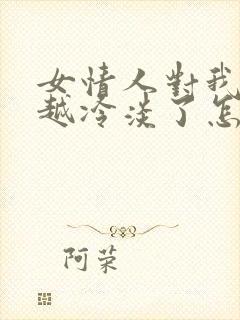 女情人對我
越冷淡了怎
阿荣